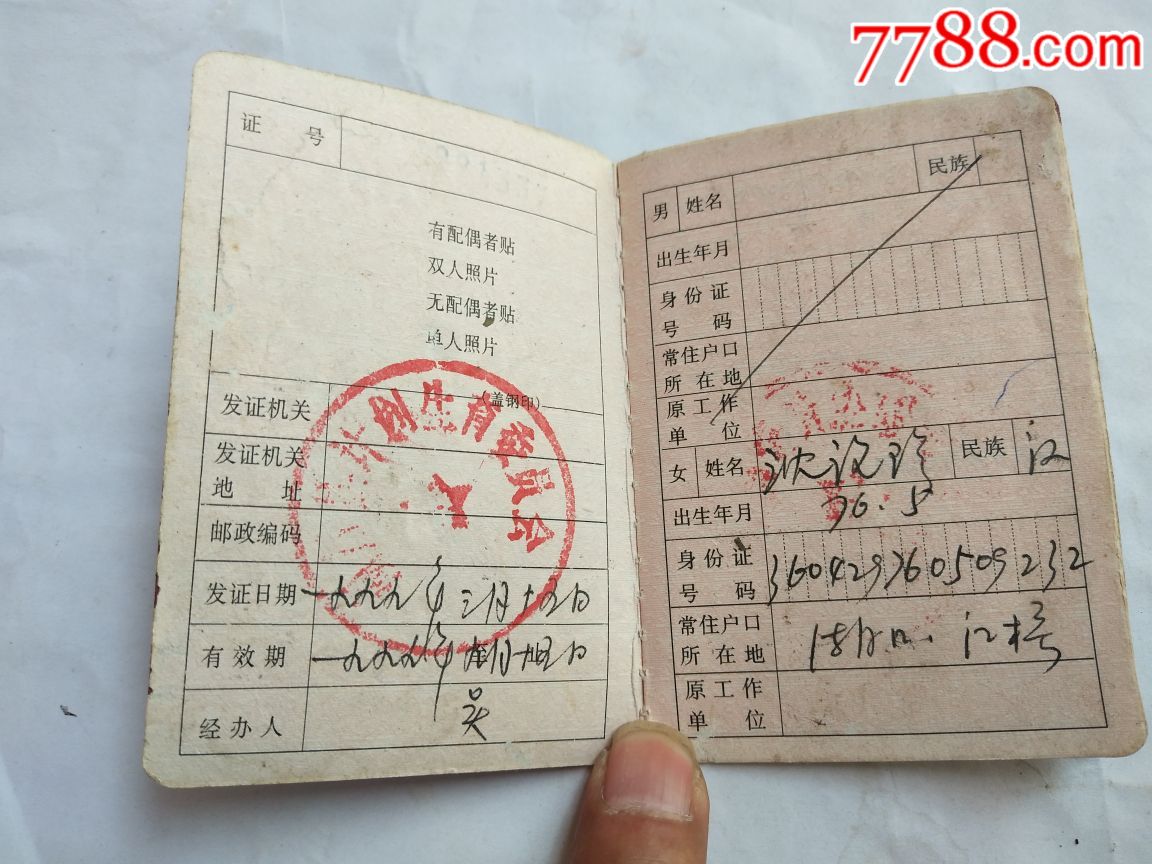 7788.com
证 号
有配偶者贴
双人照片
无配偶者贴
单人照片
(盖钢印)
发证机关
发证机关
地 址
邮政编码
发证日期 一九九九年三月十五日
有效期 一九九九年 月 日
经办人 吴
计划生育委员会
男 姓名 民族
出生年月
身份证
号 码
常住户口
所在地
原工作
单 位
女 姓名 沈 民族 汉
出生年月 76.5
身份证
号 码 360429760509232
常住户口
所在地 江桥
原工作
单 位